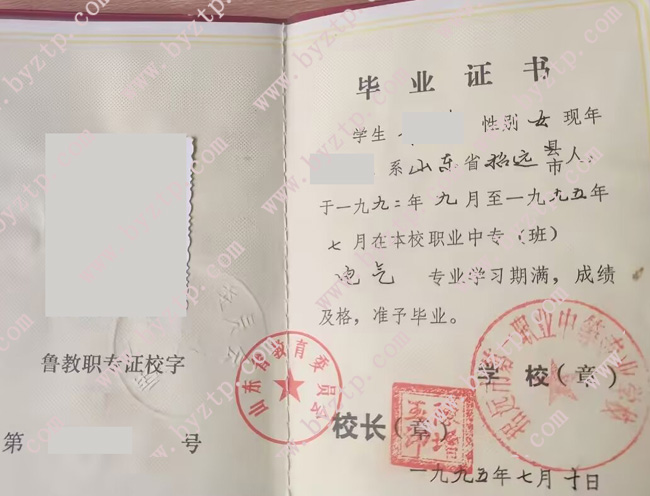 鲁教职专证校字
第 号
山东省教育委员会
毕业证书
学生 性别女现年
系山东省招远县市人,
于一九九二年九月至一九九五年
七月在本校职业中专(班)
电气 专业学习期满,成绩
及格,准予毕业。
学校(章)
校长(章)
一九九五年七月十日
www.byztp.com